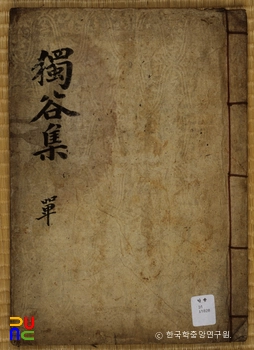 獨谷集
單
© 한국학중앙연구원